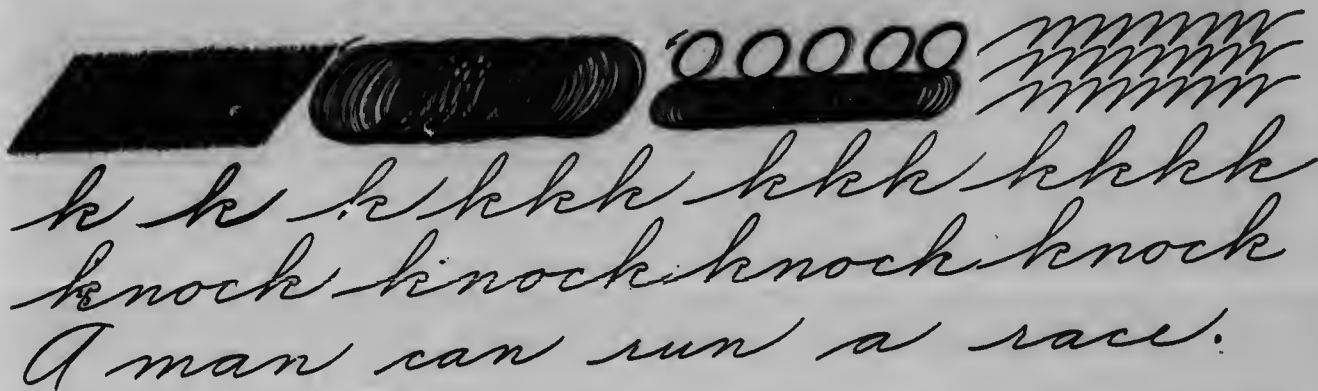 k k k kkk kkk kkkk
knock knock knock knock
A man can run a race.